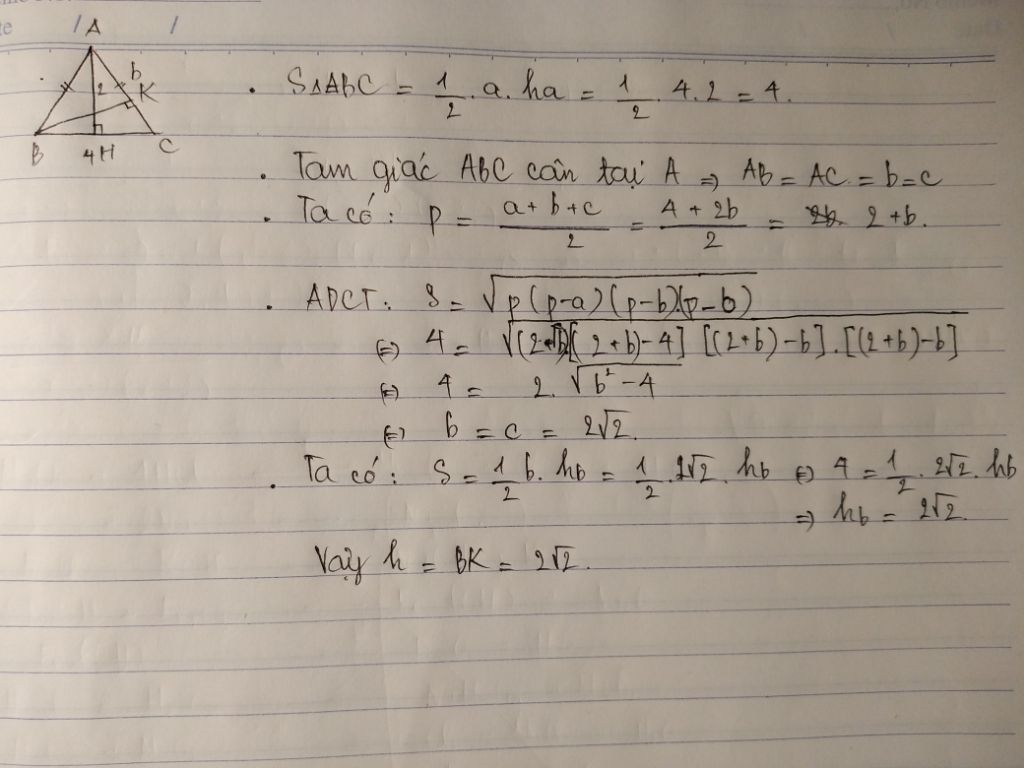 A
b
2
K
B
4H
C
. SΔABC = 1/2 . a. ha = 1/2 . 4.2 = 4.
. Tam giác ABC cân tại A => AB = AC = b=c
. Ta có: p = (a+b+c)/2 = (4+2b)/2 = 2+b.
. ADCT: S = √p(p-a)(p-b)(p-b)
(=) 4 = √(2+b)[(2+b)-4] [(2+b)-b].[(2+b)-b]
(=) 4 = 2. √b²-4
(=) b = c = 2√2.
. Ta có: S = 1/2 b. hb = 1/2 .2√2. hb (=) 4 = 1/2 . 2√2. hb
=> hb = 2√2.
Vậy h = BK = 2√2.